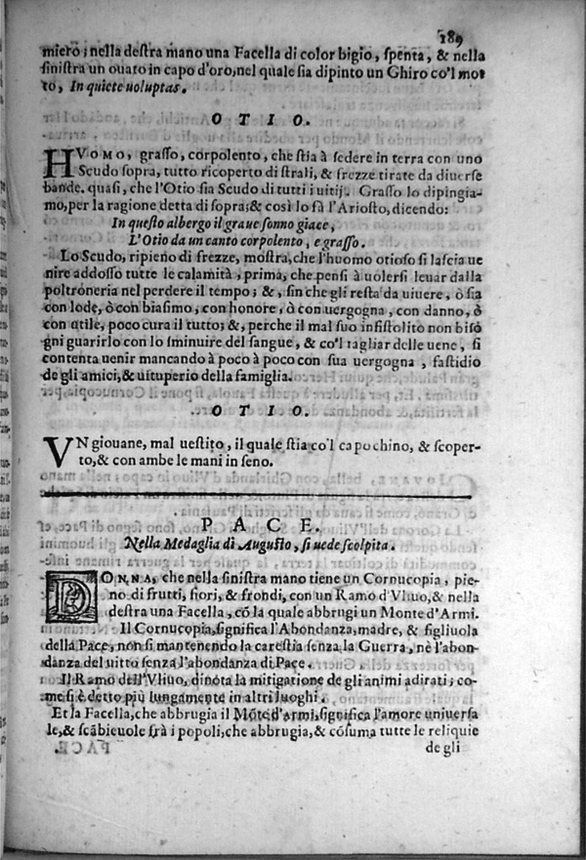 189
miero; nella destra mano una Facella di color bigio, spenta, & nella
sinistra un ouato in capo d'oro, nel quale sia dipinto un Ghiro co'l mot
to, In quiete uoluptas.
O T I O.
HVOMO, grasso, corpolento, che stia à sedere in terra con uno
Scudo sopra, tutto ricoperto di strali, & frezze tirate da diuerse
bande. quasi, che l'Otio sia Scudo di tutti i uitij. Grasso lo dipingia-
mo, per la ragione detta di sopra; & così lo fà l'Ariosto, dicendo:
In questo albergo il graue sonno giace,
L'Otio da un canto corpolento, e grasso.
Lo Scudo, ripieno di frezze, mostra, che l'huomo otioso si lascia ue
nire addosso tutte le calamità, prima, che pensi à uolersi leuar dalla
poltroneria nel perdere il tempo; &, sin che gli resta da uiuere, ò sia
con lode, ò con biasimo, con honore, ò con uergogna, con danno, ò
con utile, poco cura il tutto; &, perche il mal suo infistolito non biso
gni guarirlo con lo sminuire del sangue, & co'l tagliar delle uene, si
contenta uenir mancando à poco à poco con sua uergogna, fastidio
de gli amici, & uituperio della famiglia.
O T I O.
VN giouane, mal uestito, il quale stia co'l capo chino, & scoper-
to, & con ambe le mani in seno.
P A C E.
Nella Medaglia di Augusto, si uede scolpita.
DONNA, che nella sinistra mano tiene un Cornucopia, pie-
no di frutti, fiori, & frondi, con un Ramo d'Vliuo, & nella
destra una Facella, cõ la quale abbrugi un Monte d'Armi.
Il Cornucopia, significa l'Abondanza, madre, & figliuola
della Pace, non si mantenendo la carestia senza la Guerra, nè l'abon-
danza del uitto senza l'abondanza di Pace.
Il Ramo dell'Vliuo, dinota la mitigatione de gli animi adirati; co-
me si è detto più lungamente in altri luoghi.
Et la Facella, che abbrugia il Mõte d'Armi, significa l'amore uniuersa
le, & scãbieuole frà i popoli, che abbrugia, & cõsuma tutte le reliquie
de gli